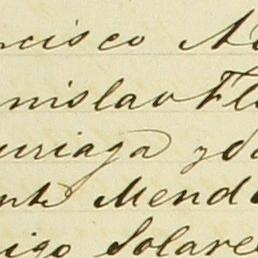 ncisco A
anislao Fl
uriaga y d
ente Mend
igo Solare